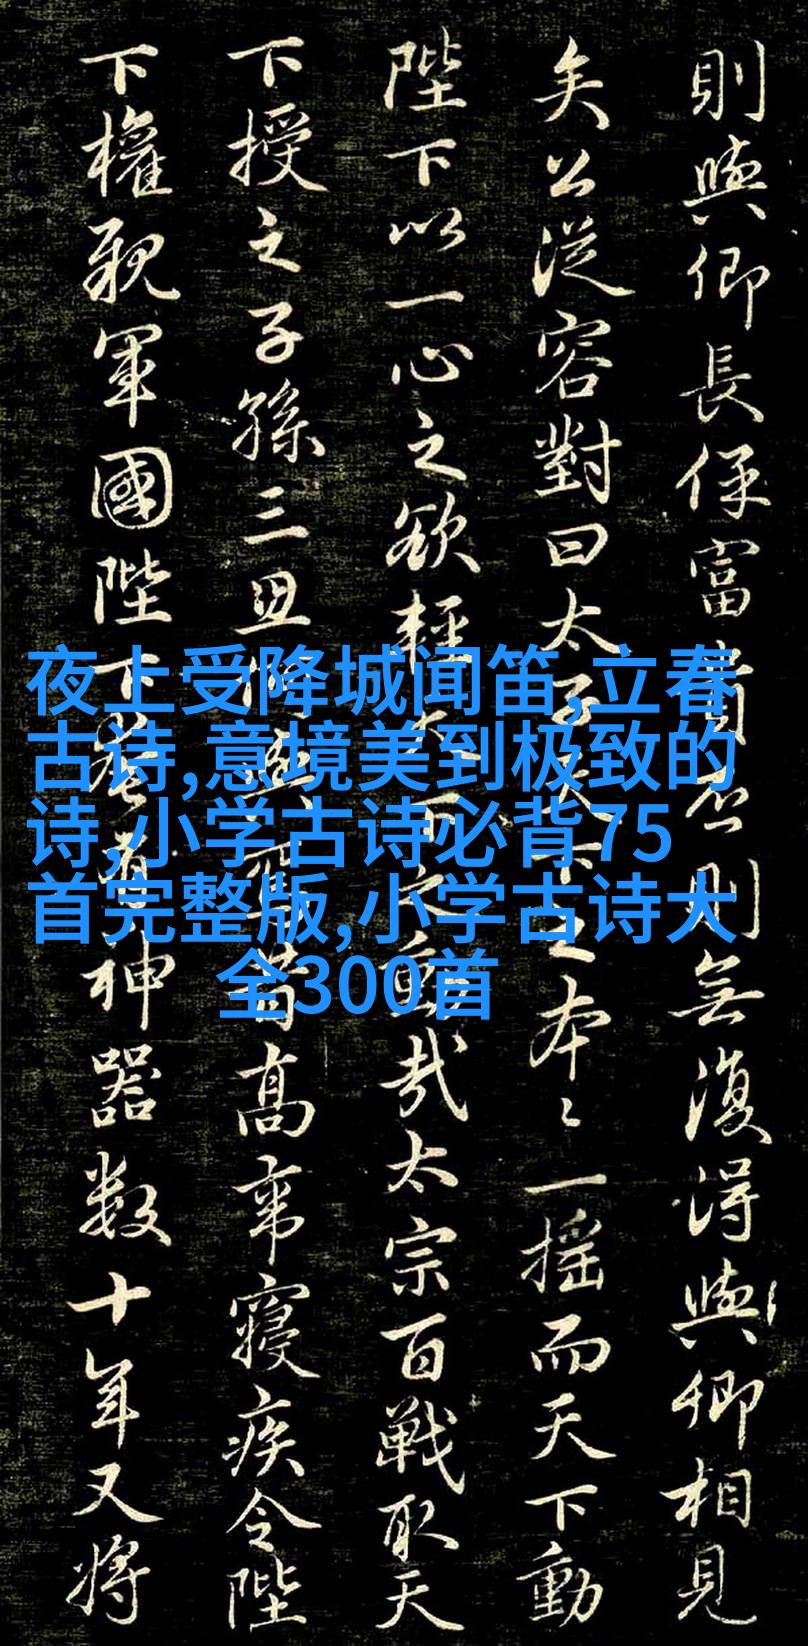 則與卿長保富貴不則無復得與卿相見
矣公從容對曰太子天下之本〻一摇而天下動
陛下以一心之欲輕天下之哉太宗百戰取天
下授之子孫三昔高帝寢疾令陛
下權親軍國陛下神器数十年又將
夜上受降城闻笛,立春
古诗,意境美到极致的
诗,小学古诗必背75
首完整版,小学古诗大
全300首